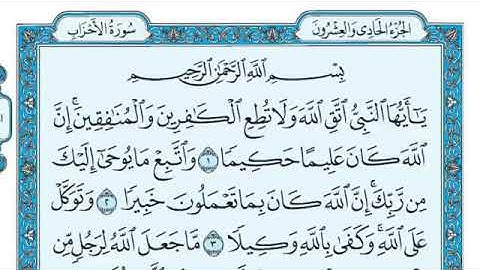 سُورَةُ الأَحْزَابِ
الجُزْءُ الحَادِي وَالعِشْرُونَ
بِسْمِ اللَّهِ الرَّحْمَٰنِ الرَّحِيمِ
يَٰٓأَيُّهَا النَّبِيُّ اتَّقِ اللَّهَ وَلَا تُطِعِ الْكَٰفِرِينَ وَالْمُنَٰفِقِينَ ۚ إِنَّ
اللَّهَ كَانَ عَلِيمًا حَكِيمًا ١ وَاتَّبِعْ مَا يُوحَىٰ إِلَيْكَ
مِن رَّبِّكَ ۚ إِنَّ اللَّهَ كَانَ بِمَا تَعْمَلُونَ خَبِيرًا ٢ وَتَوَكَّلْ
عَلَى اللَّهِ ۚ وَكَفَىٰ بِاللَّهِ وَكِيلًا ٣ مَّا جَعَلَ اللَّهُ لِرَجُلٍ مِّن